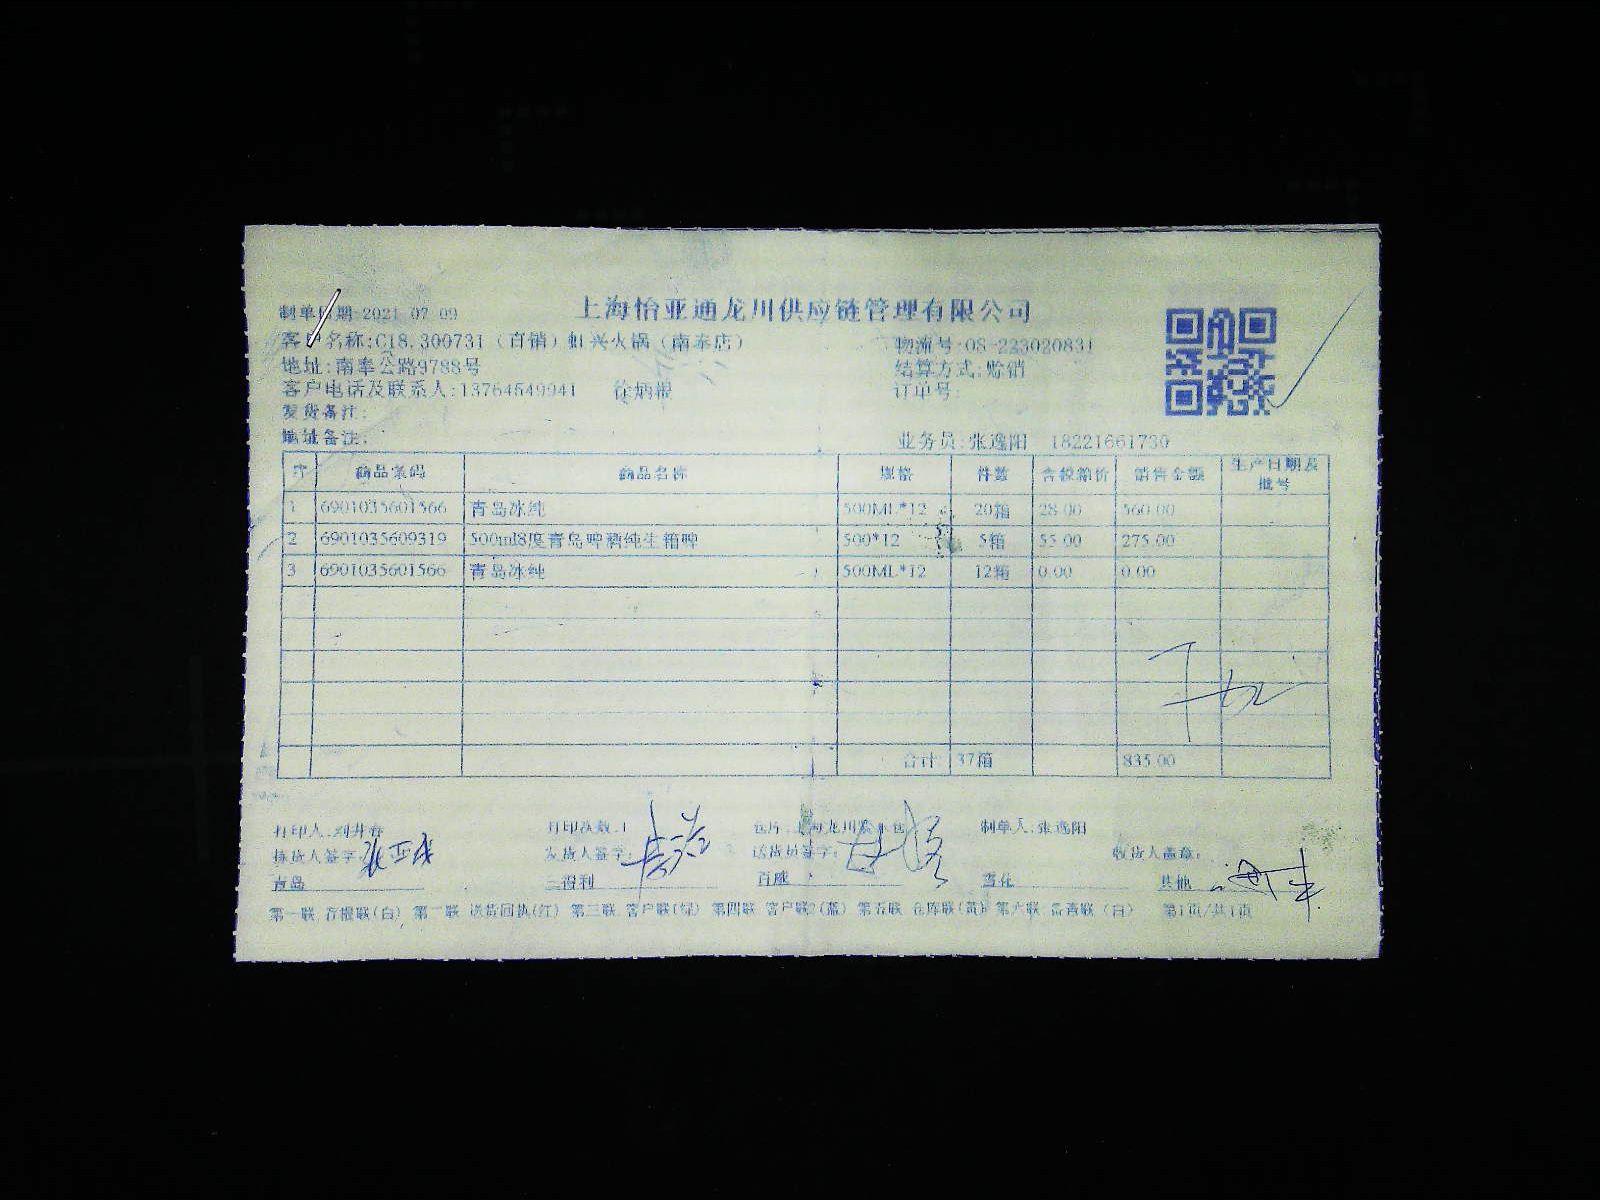 上海怡亚通龙川供应链管理有限公司
制单日期:2021-07-09
客户名称:C18.300731（直销）蚪兴火锅（南奉店） 物流号:08-223020831
地址:南奉公路9788号 结算方式:赊销
客户电话及联系人:13764549941 徐炳根 订单号:
发货备注:
地址备注: 业务员:张逸阳 18221661739
序 商品条码 商品名称 规格 件数 含税箱价 销售金额 生产日期及批号
1 6901035601566 青岛冰纯 500ML*12 20箱 28.00 560.00
2 6901035609319 500ml8度青岛啤酒纯生箱啤 500*12 5箱 55.00 275.00
3 6901035601566 青岛冰纯 500ML*12 12箱 0.00 0.00
合计 37箱 835.00
打印人: 打印次数:1 仓库:上海龙川 制单人:张逸阳
拣货人签字: 发货人签字: 送货员签字: 收货人盖章:
青岛 三得利 百威 雪花 其他
第一联 存根联(白) 第二联 送货回执(红) 第三联 客户联1(绿) 第四联 客户联2(蓝) 第五联 仓库联(黄) 第六联 备查联（白） 第1页/共1页